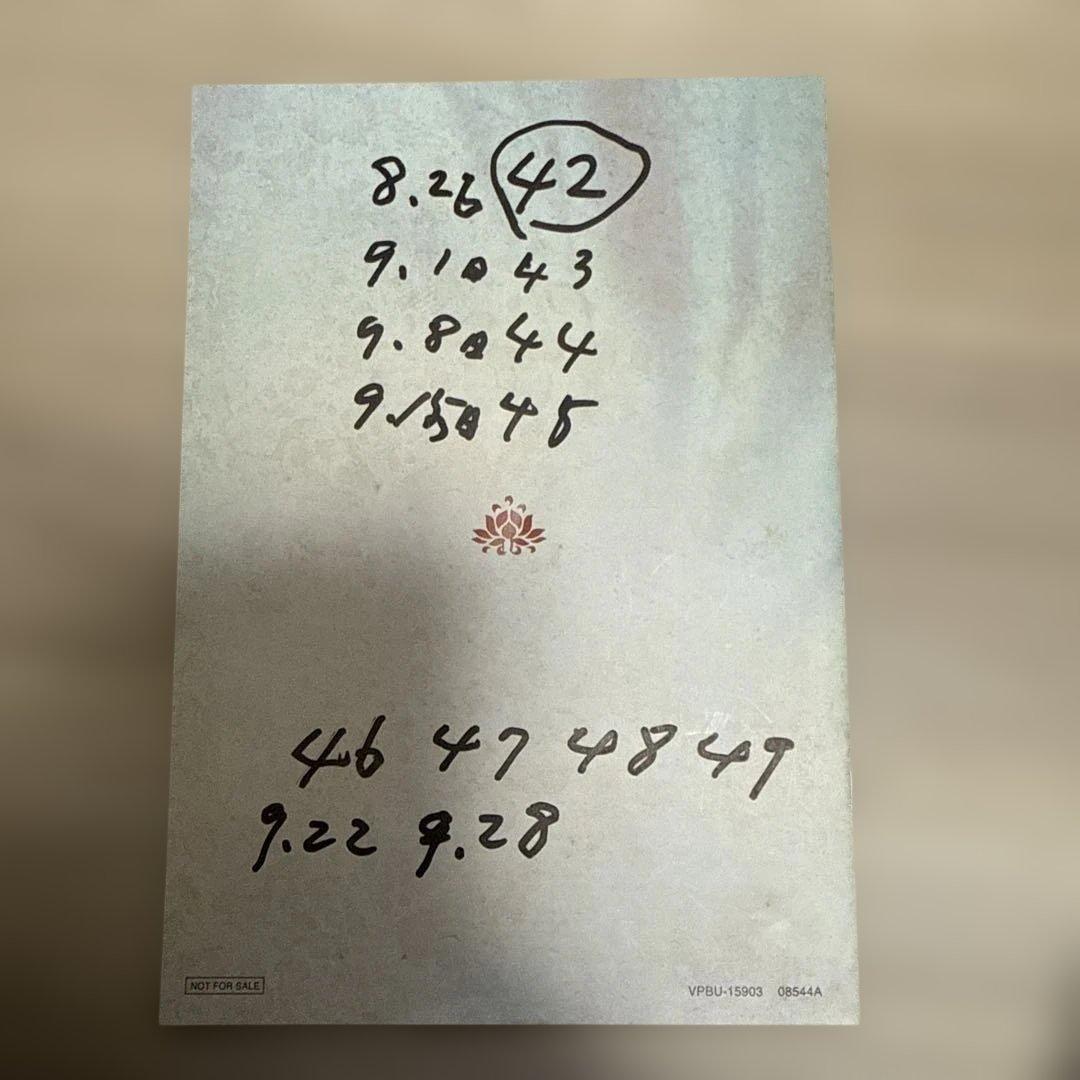 8.26 42
9.1日 43
9.8日 44
9.15日 45
46 47 48 49
9.22 9.28
NOT FOR SALE
VPBU-15903 08544A